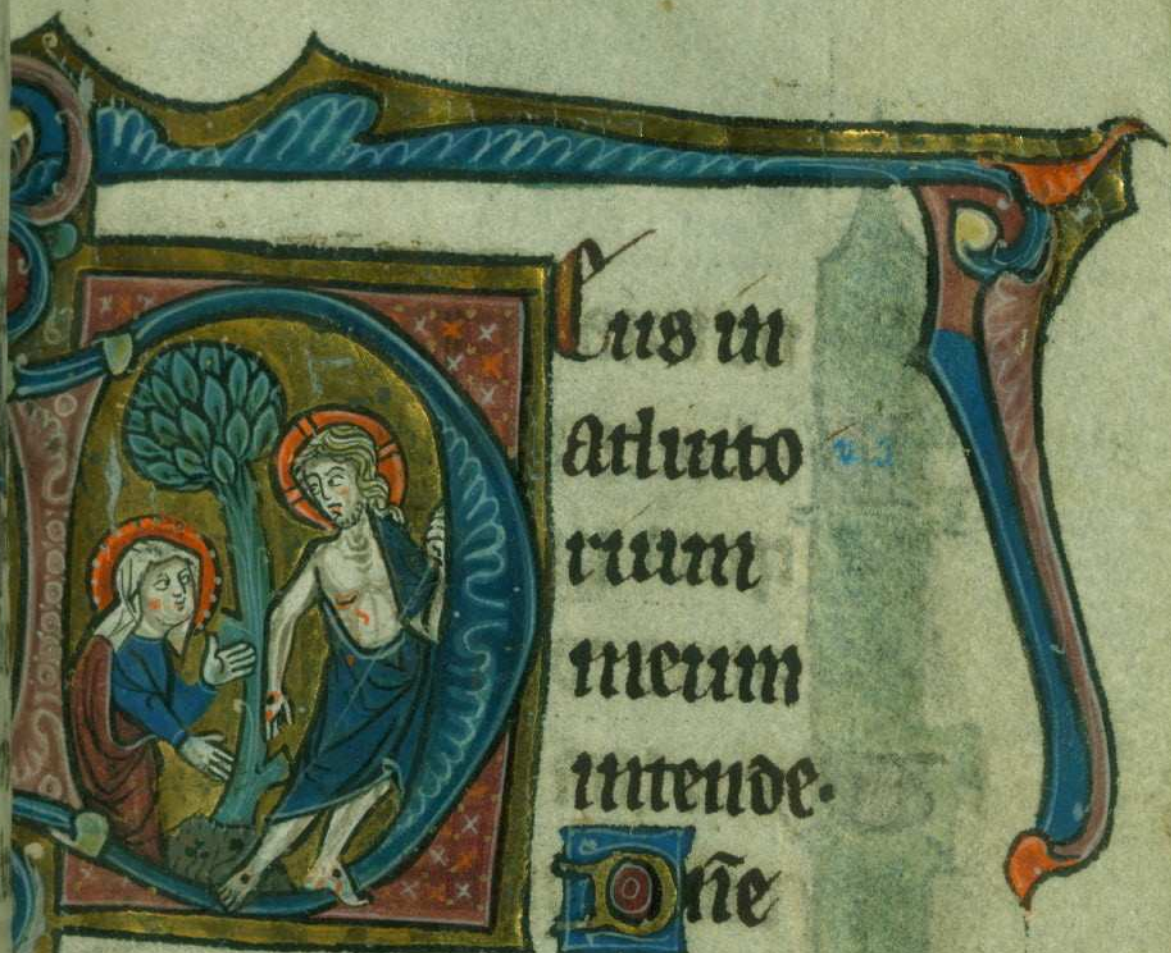 Deus in
adiuto
rium
meum
intende.
Dn̄e